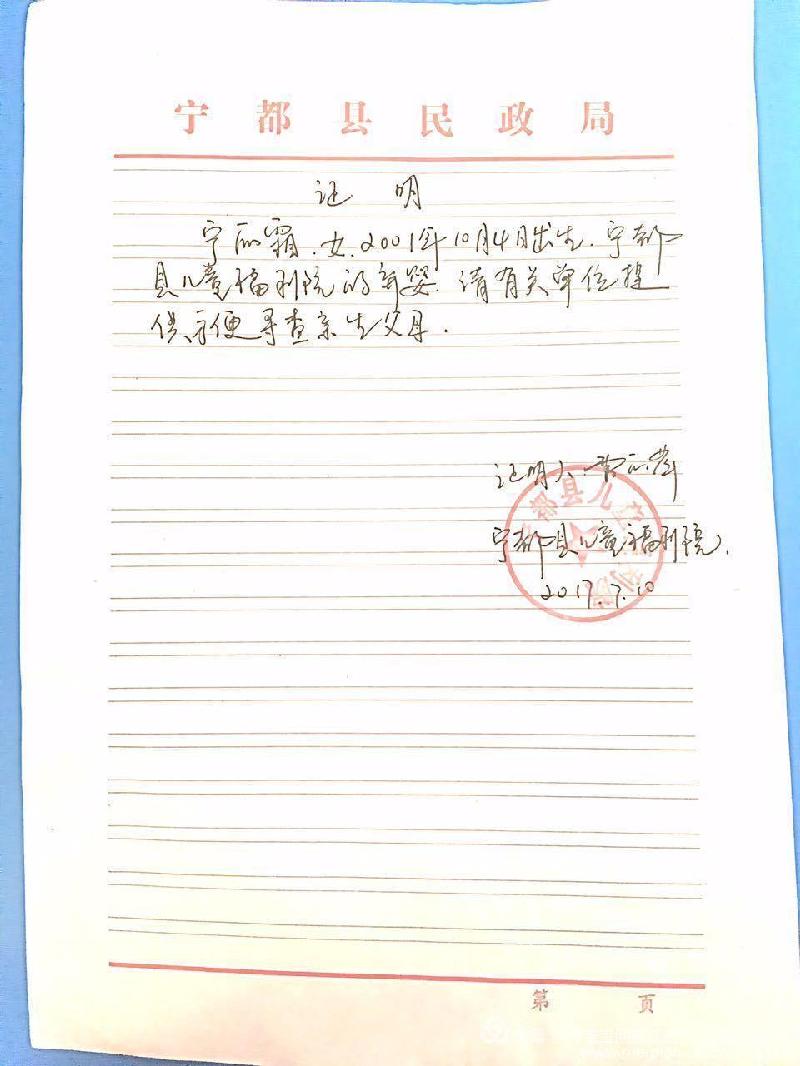 宁都县民政局
证明
宁丽霜.女.2001年10月4日出生.宁都
县儿童福利院的弃婴.请有关单位提
供方便寻查亲生父母.
证明人:
宁都县儿童福利院.
2017.7.10
第 页